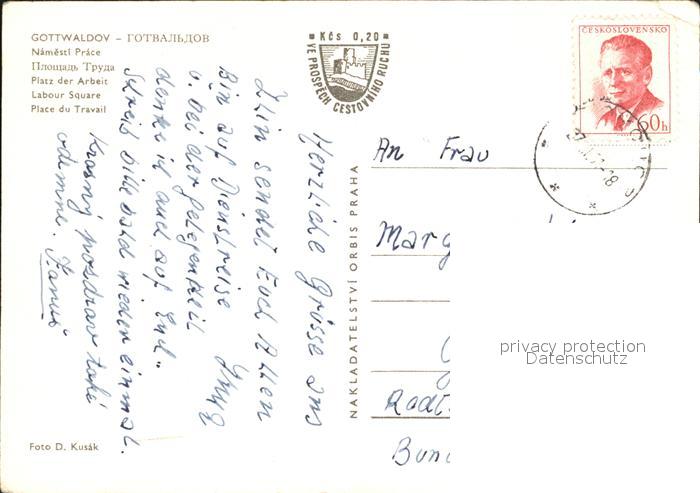 GOTTWALDOV – ГОТВАЛЬДОВ
Náměstí Práce
Площадь Труда
Platz der Arbeit
Labour Square
Place du Travail
Kčs 0,20
VE PROSPĚCH CESTOVNÍHO RUCHU
ČESKOSLOVENSKO
60h
Herzliche Grüsse aus
Zlin sendet Euch Allen
Bin auf Dienstreise
u. bei der Gelegenheit
denke ich auch auf Euch.
Schreib bitte bald wieder einmal.
Krásný pozdrav také
odemne. Hanuš
NAKLADATELSTVÍ ORBIS PRAHA
An Frau
Marg
Radt
Bun
privacy protection
Datenschutz
Foto D. Kusák